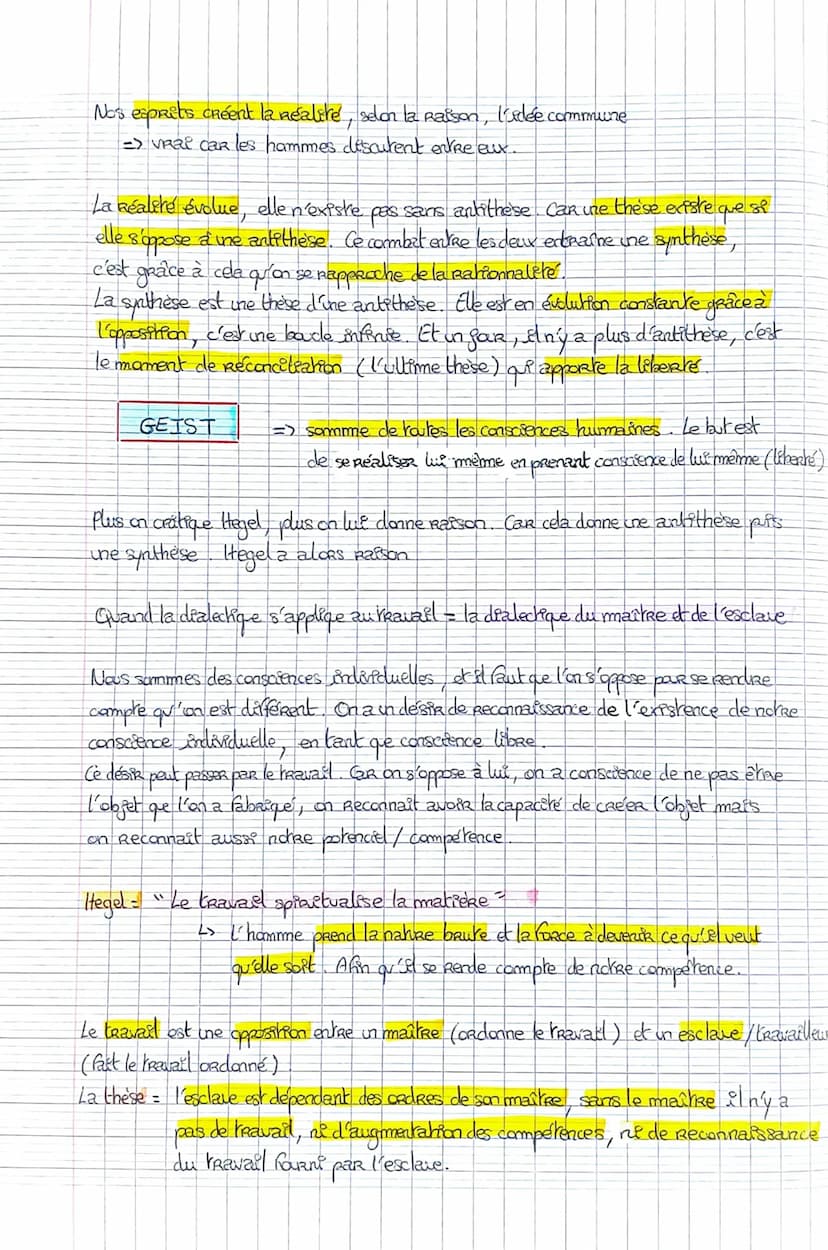 Nos esprits créent la réalité, selon la raison, l'idée commune
=> vrai car les hommes discutent entre eux.
La réalité évolue, elle n'existe pas sans antithèse. Car une thèse existe que si
elle s'oppose à une antithèse. Ce combat entre les deux entraîne une synthèse,
c'est grâce à cela qu'on se rapproche de la rationnalité.
La synthèse est une thèse d'une antithèse. Elle est en évolution constante grâce à
l'opposition, c'est une boucle infinie. Et un jour, il n'y a plus d'antithèse, c'est
le moment de réconciliation (l'ultime thèse) qui apporte la liberté.
GEIST => sommme de toutes les consciences humaines. Le but est
de se réaliser lui même en prenant conscience de lui même (liberté)
Plus on critique Hegel, plus on lui donne raison. Car cela donne une antithèse puis
une synthèse. Hegel a alors raison
Quand la dialectique s'applique au travail = la dialectique du maître et de l'esclave
Nous sommes des consciences individuelles, et il faut que l'on s'oppose par se rendre
compte qu'on est différent. On a un désir de reconnaissance de l'existence de notre
conscience individuelle, en tant que conscience libre.
Ce désir peut passer par le travail. Car on s'oppose à lui, on a conscience de ne pas être
l'objet que l'on a fabriqué, on reconnaît avoir la capacité de créer l'objet mais
on reconnaît aussi notre potenciel / compétence.
Hegel = "Le travail spiritualise la matière"
↳ L'homme prend la nature brute et la force à devenir ce qu'il veut
qu'elle soit. Afin qu'il se rende compte de notre compétence.
Le travail est une opposition entre un maître (ordonne le travail) et un esclave/travailleu
(fait le travail ordonné)
La thèse = l'esclave est dépendant des ordres de son maître, sans le maître il n'y a
pas de travail, ni d'augmentation des compétences, ni de reconnaissance
du travail fourni par l'esclave.